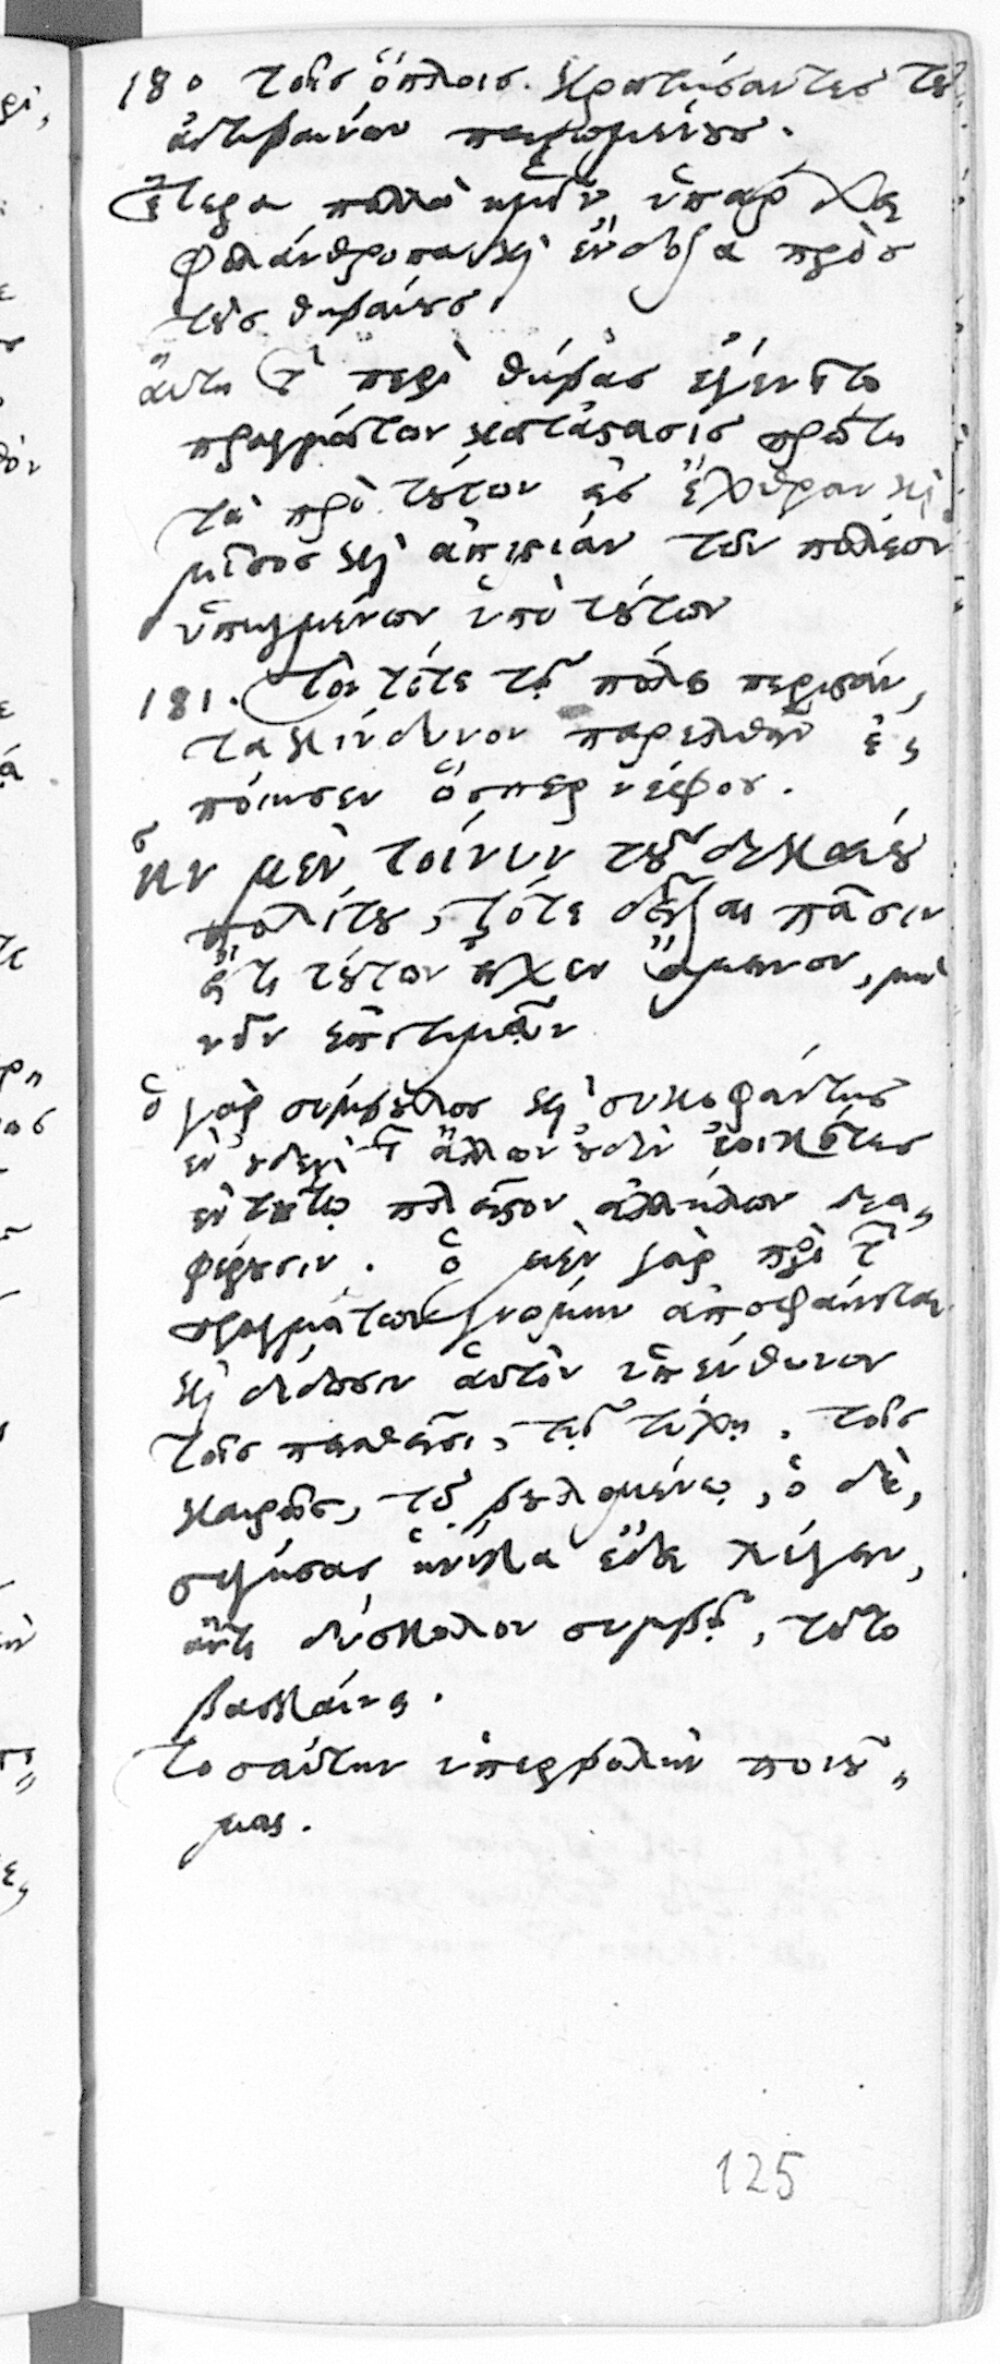 180 τοῖς ὅπλοις. κρατήσαντες τȣ̀ς
ἀντιβαίνειν πειρωμένȣς.
ἕτερα πολλὰ ἡμῖν ὑπάρχει
φιλάνθρωπα κὶ ἔνδοξα πρὸς
τȣ̀ς θηβαίȣς
αὕτη τ͂ περὶ θήβας ἐγένετο
πραγμάτων κατάϛασις πρώτη
τὰ πρὸ τȣ́των εἰς ἔχθραν κὶ
μῖσος κὶ ἀπιϛίαν τῶν πόλεων
ὑπηγμένων ὑπὸ τȣ́των
181. τὸν τότε τῇ πόλει περιϛάν,
τα κίνδυνον παρελθεῖν ἐ,
ποίησεν ὥσπερ νέφος.
ἦν μὲν τοίνυν τȣ͂ δικαίȣ
πολίτȣ, τότε δεῖξαι πᾶσιν
εἴ τι τȣ́των εἶχεν ἄμεινον, μὴ
νῦν ἐπιτιμᾷν
ὁ γὰρ σύμβȣλος κὶ συκοφάντης
ἐν ȣ̓δενὶ τ͂ ἄλλων ȣ̓δὲν ἐοικότες
ἐν τȣ́τῳ πλεῖϛον ἀλλήλων δια,
φέρȣσιν. ὁ μὲν γὰρ πρὸ τ͂
πραγμάτων γνώμην ἀποφαίνεται
κὶ δίδωσιν αὑτὸν ὑπεύθυνον
τοῖς πεισθεῖσι, τῇ τύχῃ, τοῖς
καιροῖς, τῷ βȣλομένῳ, ὁ δὲ,
σιγήσας ἡνίκα ἔδει λέγειν,
ἄν τι δύσκολον συμβῇ, τȣ͂το
βασκαίνει.
τοσαύτην ὑπερβολὴν ποιȣ͂,
μαι.
125